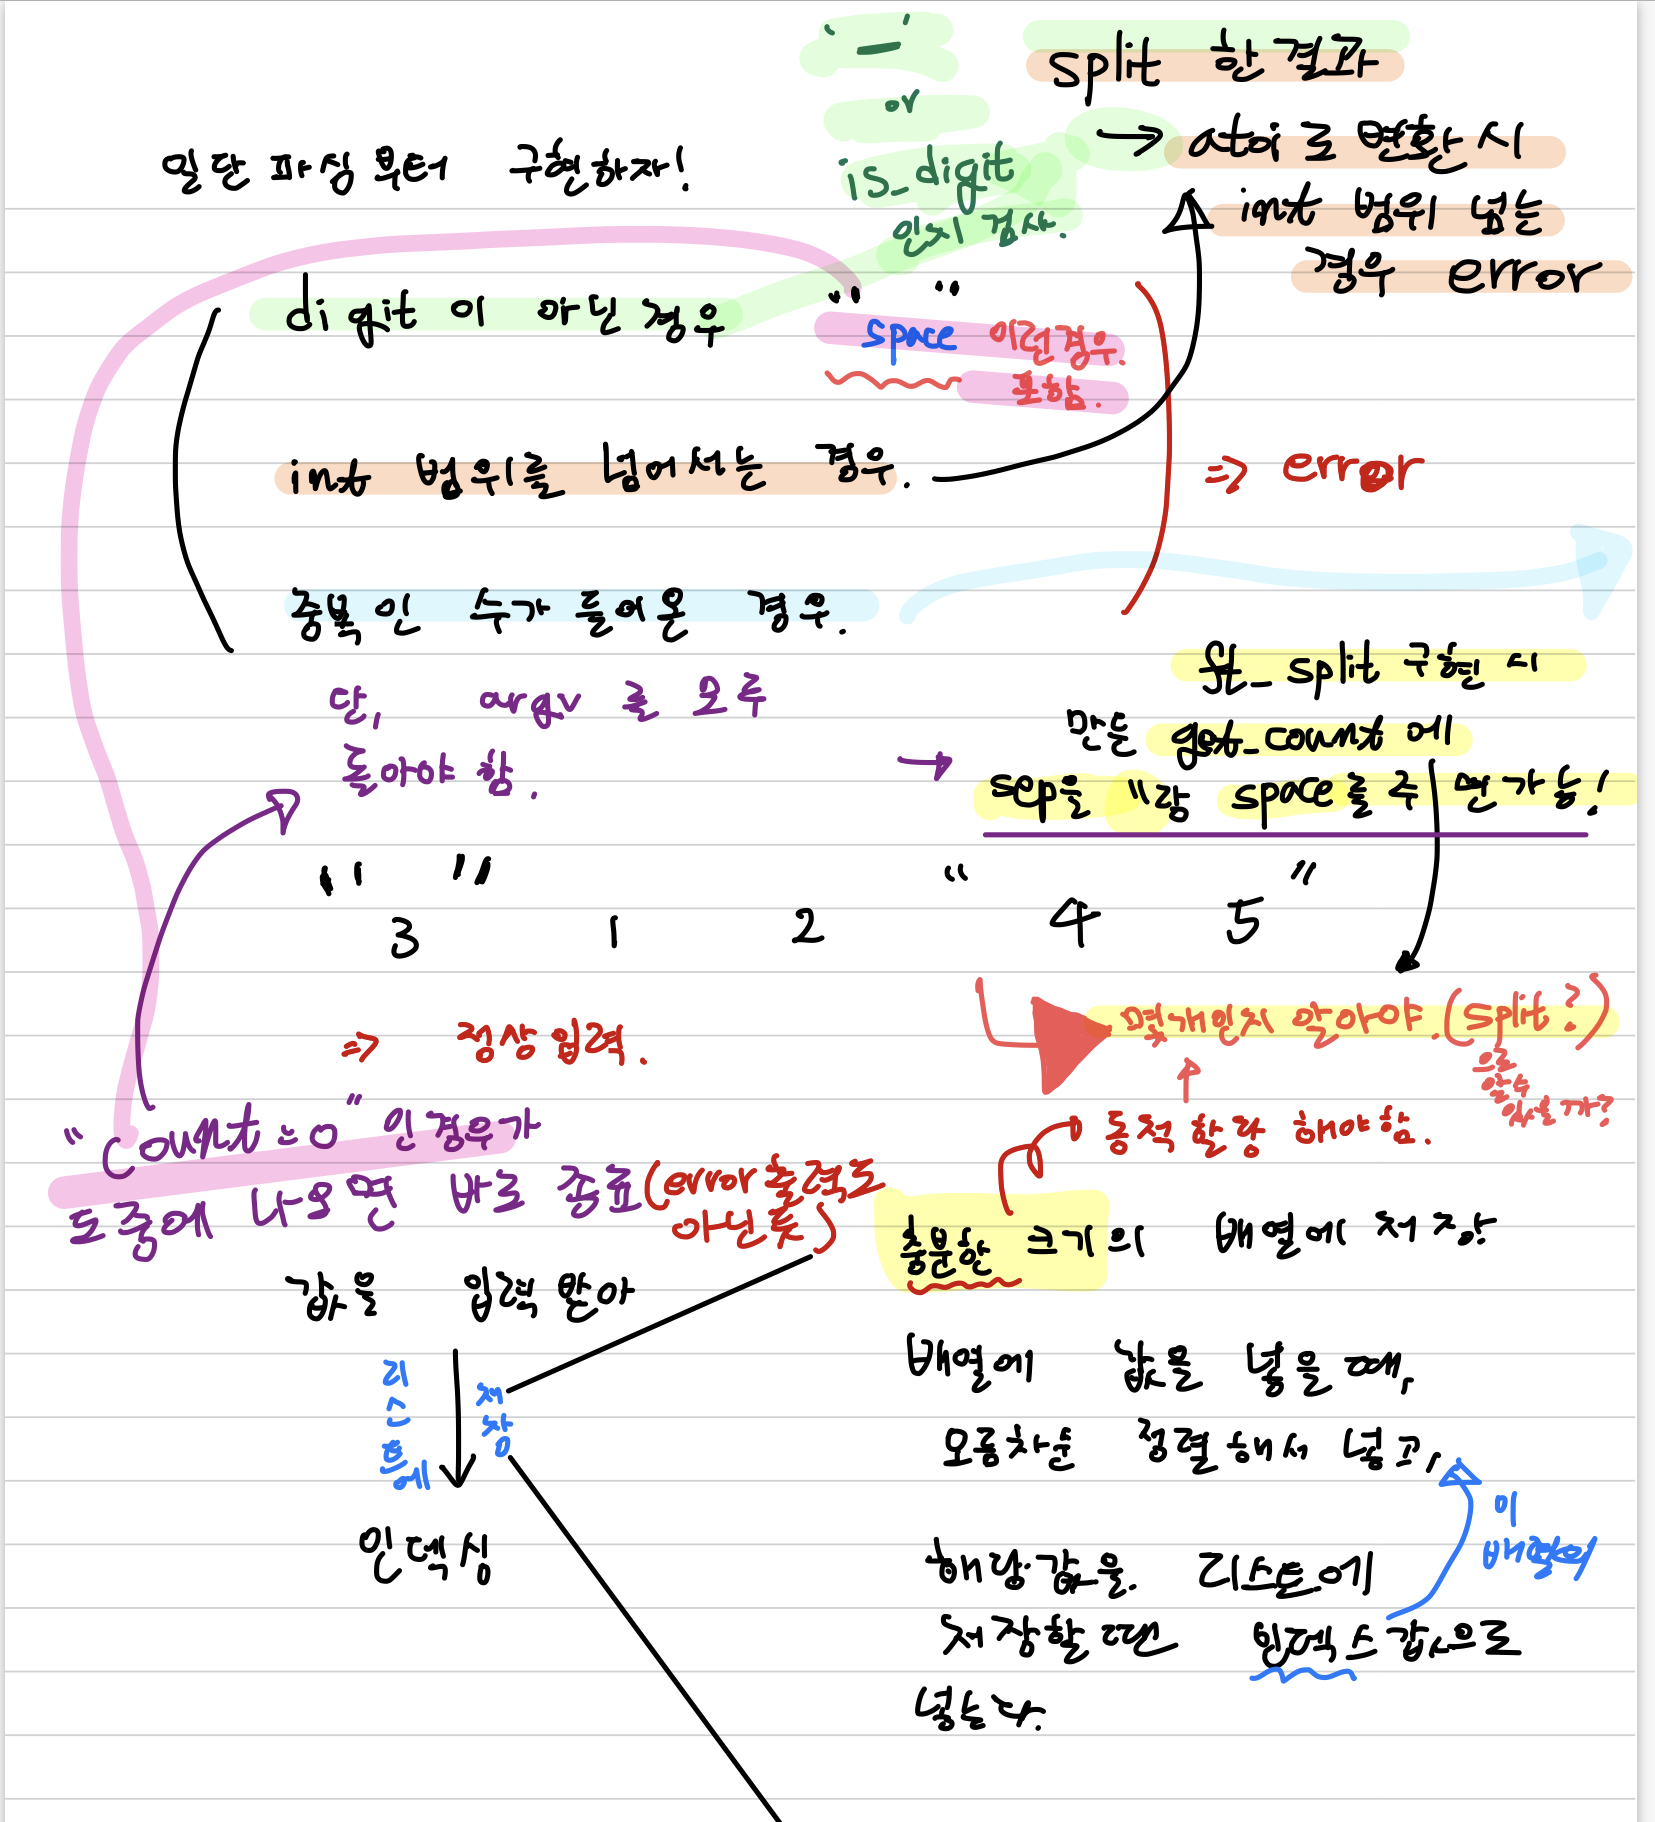 '-'
or
is_digit
인지 검사.
split 한 결과
→ atoi로 변환 시
int 범위 넘는
경우 error
일단 파싱 부터 구현하자!
digit 이 아닌 경우
" "
space 이런경우.
포함.
int 범위를 넘어서는 경우.
=> error
중복인 수가 들어온 경우.
단, argv 를 모두
돌아야 함.
→
ft_split 구현 시
만든 get_count 에
sep을 "랑 space를 주면 가능!
" 3 " 1 2 " 4 5 "
=> 정상 입력.
몇개인지 알아야.(split?)
으로
알수
있을까?
동적 할당 해야함.
"Count = 0" 인 경우가
도중에 나오면 바로 종료(error 출력도
아닌듯)
충분한 크기의 배열에 저장
값을 입력 받아
리스트에
저장
인덱싱
배열에 값을 넣을 때,
오름차순 정렬해서 넣고,
이
배열의
해당 값을. 리스트에
저장할 땐 인덱스 값으로
넣는다.